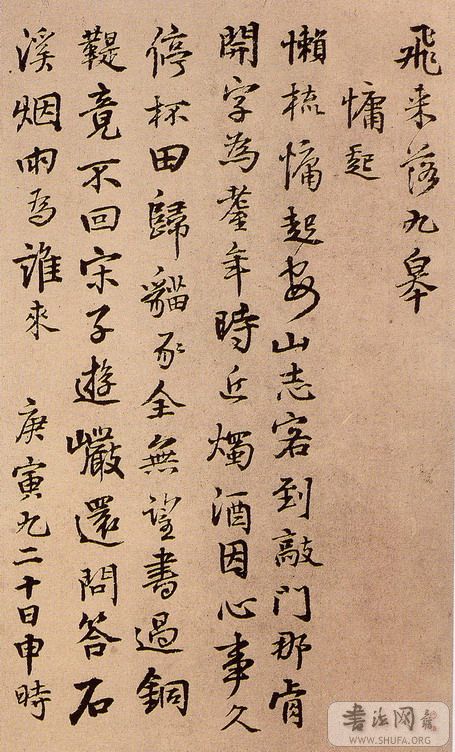 飛来落九皋
慵起
懶梳慵起山志客到敲門那肯
開字為年時近燭酒因心事久
停杯田歸貓豕全無望書過銅
鞮竟不回宋子遊巖還問答石
溪烟雨為誰来
庚寅九二十日申時
書法网
WWW.SHUFA.ORG